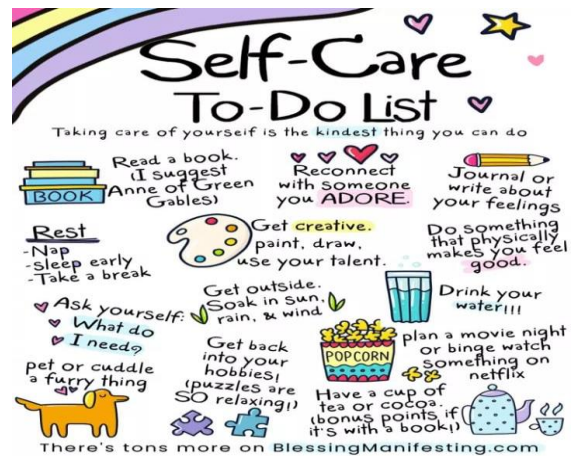 Self-Care
To-Do List
Taking care of yourself is the kindest thing you can do
BOOK
Read a book.
(I suggest
Anne of Green
Gables)
Reconnect
with someone
you ADORE.
Journal or
write about
your feelings
Rest
-Nap
-Sleep early
-Take a break
Get creative.
paint, draw,
use your talent.
Do something
that physically
makes you feel
good.
Ask yourself:
What do
I need?
Get outside.
Soak in sun,
rain, & wind
Drink your
water!!!
pet or cuddle
a furry thing
Get back
into your
hobbies!
(puzzles are
SO relaxing!)
POPCORN
plan a movie night
or binge watch
something on
netflix
Have a cup of
tea or cocoa.
(bonus points if
it's with a book!)
There's tons more on BlessingManifesting.com